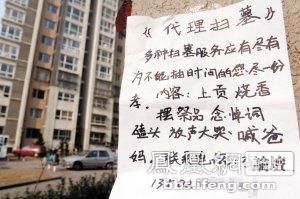 《代理扫墓》
多种扫墓服务应有尽有
为不能抽时间的您尽一份
孝。内容:上贡烧香
摆祭品念悼词
磕头 放声大哭、喊爸
妈,
鳳凰網論壇
ifeng.com